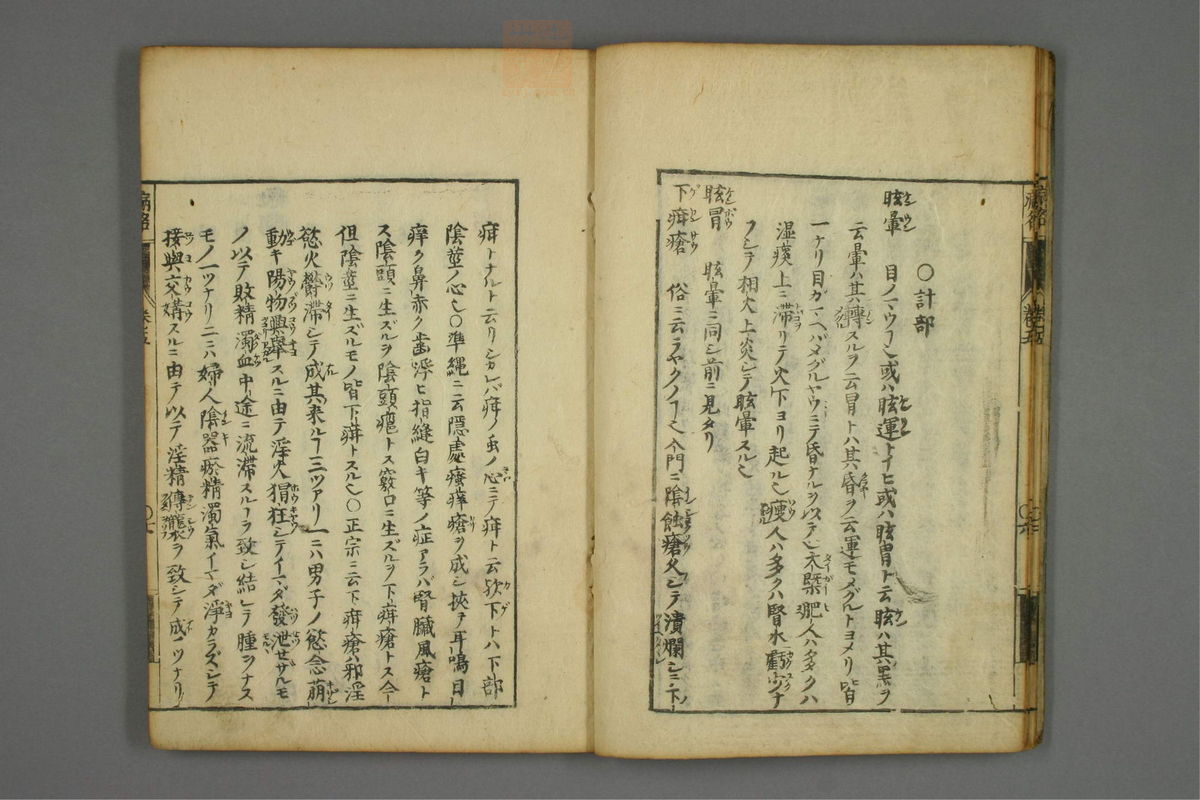 ○計部
眩暈 目ノマウヿ也或ハ眩運トイヒ或ハ眩冒ト云眩ハ其黒ヲ
云暈ハ其轉スルヲ云冒トハ其昏ヲ云運モメグルトヨメリ皆
一ナリ目ガマヘバメグルヤウニテ昏ナルヲ以テ也大槩肥人ハ多クハ
湿痰上ニ滞リテ火下ヨリ起ル也瘦人ハ多クハ腎水虧少ナ
フシテ相火上炎シテ眩暈スル也
眩冒 眩暈ニ同シ前ニ見タリ
下疳瘡 俗ニ云ラヤクノヿ也入門ニ陰蝕瘡久シテ潰爛シニ下
疳トナルト云リシカレバ疳ノ虫ノ心ニテ疳ト云欤下トハ下部
陰莖ノ心也○準縄ニ云隱處癢痒瘡ヲ成シ挾テ耳鳴目
痒ク鼻赤ク歯浮ヒ指縫白キ等ノ症アラバ腎臓風瘡ト
ス陰頭ニ生ズルヲ陰頭瘡トス竅口ニ生ズルヲ下疳瘡トス今
但陰莖ニ生ズルモノ皆下疳トスル也○正宗ニ云下疳瘡ハ邪淫
慾火鬱滞シテ成其来ルヿ三ツアリ一ニハ男子ノ慾念萠
動キ陽物興舉スルニ由テ淫火猖狂シテイマダ發泄セサルモ
ノ以テ敗精濁血中途ニ流滞スルヿヲ致シ結シテ腫ヲナス
モノ一ツナリ二ニハ婦人陰器瘀精濁氣イマダ淨カラズシテ
接與交媾スルニ由テ以テ淫精傳襲ヲ致シテ成ノツナリ